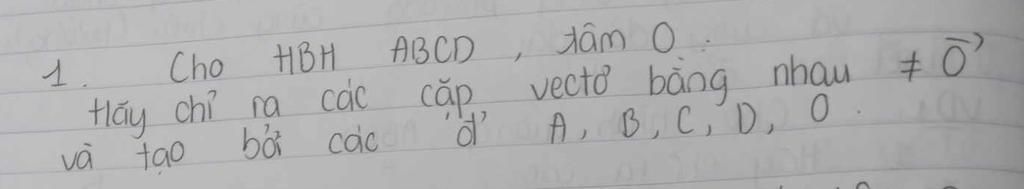 1. Cho HBH ABCD, tâm O.
Hãy chỉ ra các cặp vectơ bằng nhau ≠ 0⃗
và tạo bởi các đ' A, B, C, D, O.